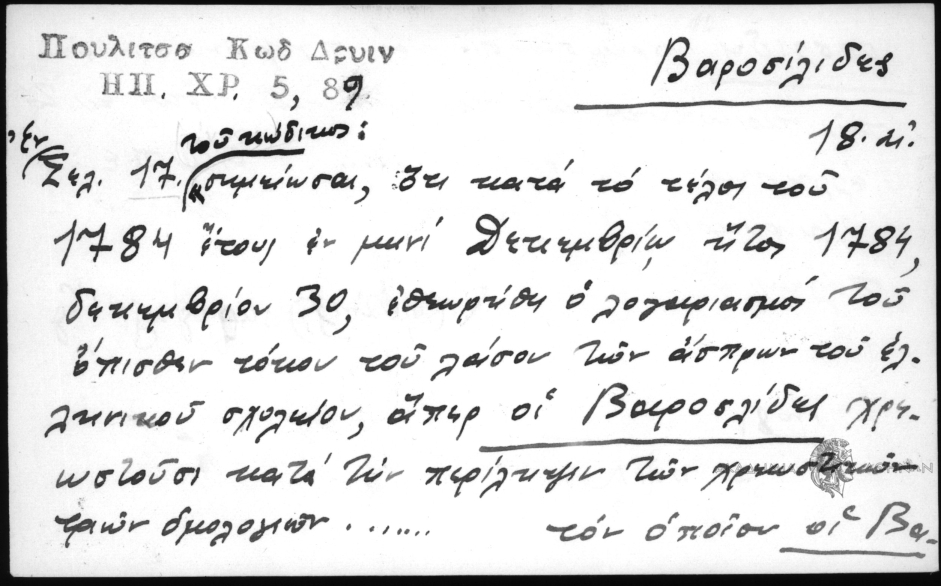 Πουλιτσα Κωδ Δρυιν
ΗΠ. ΧΡ. 5, 89.
Βαροσίλιδες
18. αἰ.
ἐν Σελ. 17. τοῦ κώδικος:
"σημείωσαι, ὅτι κατά τό τέλος τοῦ
1784 ἔτους ἐν μηνί Δεκεμβρίῳ ἤτοι 1784,
δεκεμβρίου 30, ἐθεωρήθη ὁ λογαριασμός τοῦ
ὄπισθεν τόκου τοῦ λάσου τῶν ἄσπρων τοῦ ἑλ-
ληνικοῦ σχολείου, ἅπερ οἱ Βαροσλίδες χρε-
ωστοῦσι κατά τήν περίληψιν τῶν χρεωστικῶν
των ὁμολογιῶν ...... τόν ὁποῖον οἱ Βα-